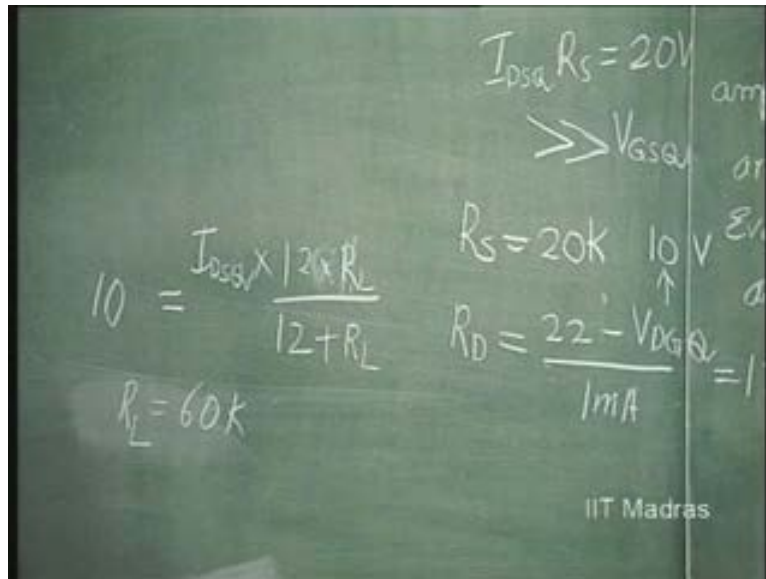 I_DSQ R_S = 20V
>> V_GSQ
R_S = 20K 10 V
↑
R_D = 22 - V_DGQ / 1mA = 1
10 = I_DSQ × 12 × R_L / 12 + R_L
R_L = 60K
am
IIT Madras